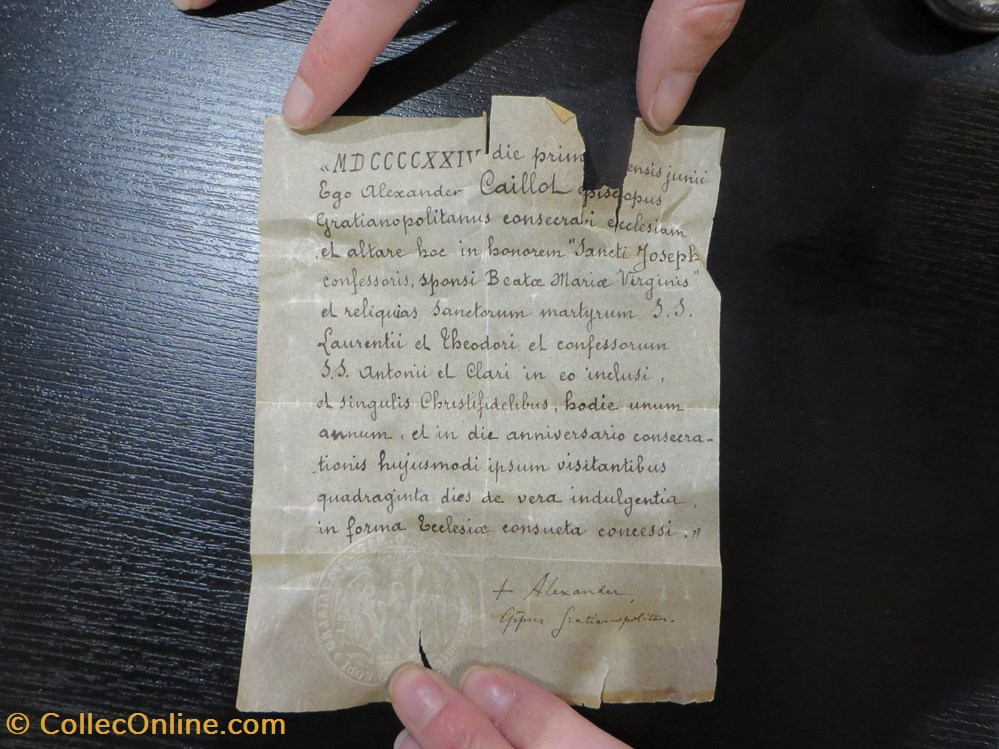 „MDCCCCXXIV die prim ensis junii
Ego Alexander Caillot episcopus
Gratianopolitanus consecravi ecclesiam
et altare hoc in honorem "Sancti Joseph
confessoris, sponsi Beatæ Mariæ Virginis"
et reliquias Sanctorum martyrum S.S.
Laurentii et Theodori et confessorum
S.S. Antonii et Clari in eo inclusi,
et singulis Christifidelibus, hodie unum
annum, et in die anniversario consecra-
tionis hujusmodi ipsum visitantibus
quadraginta dies de vera indulgentia,
in forma Ecclesiæ consueta concessi."
+ Alexander,
Eppus Gratianopolitan.
© CollecOnline.com